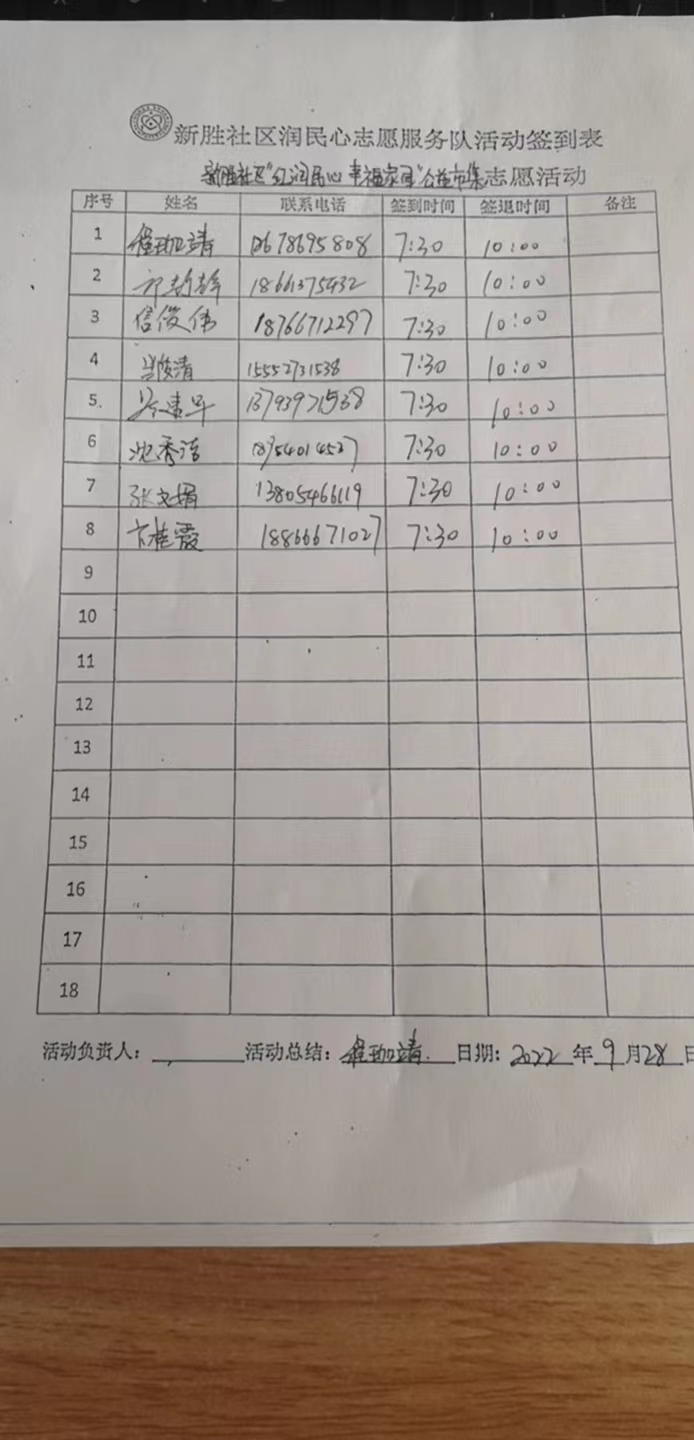 新胜社区润民心志愿服务队活动签到表
新胜社区"红润民心 幸福家园"公益市集志愿活动
序号 姓名 联系电话 签到时间 签退时间 备注
1 崔珈靖 678695808 7:30 10:00
2 7:30 10:00
3 信俊伟 18766712297 7:30 10:00
4 俊清 15552731538 7:30 10:00
5. 建华 13793971538 7:30 10:00
6 沈秀洁 7:30 10:00
7 张 13805466119 7:30 10:00
8 卞桂霞 18866671027 7:30 10:00
9
10
11
12
13
14
15
16
17
18
活动负责人: 活动总结: 崔珈靖. 日期: 2022 年 9 月 28 日